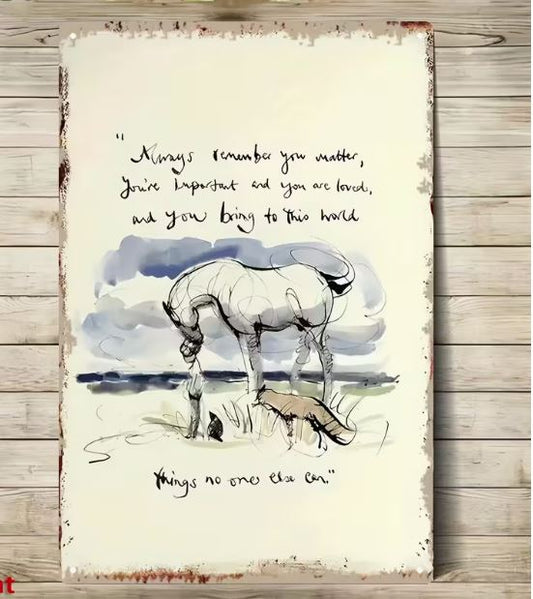 "Always remember you matter,
you're important and you are loved,
and you bring to this world
things no one else can."
nt